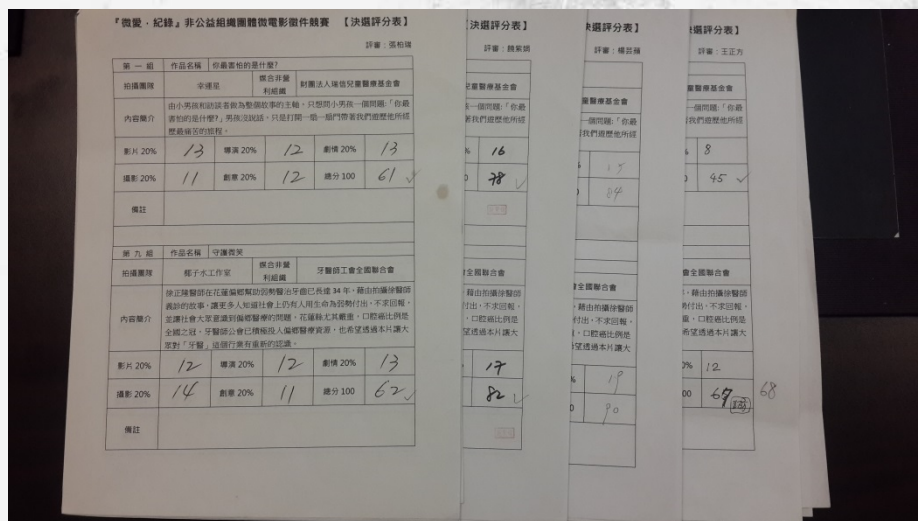 『微愛．紀錄』非公益組織團體微電影徵件競賽 【決選評分表】
評審：張柏瑞
第一組 作品名稱 你最害怕的是什麼?
拍攝團隊 幸運星 媒合非營利組織 財團法人瑞信兒童醫療基金會
內容簡介 由小男孩和訪談者做為整個故事的主軸，只想問小男孩一個問題:「你最
害怕的是什麼?」男孩沒說話，只是打開一扇一扇門帶著我們遊歷他所經
歷最痛苦的旅程。
影片 20% 13 導演 20% 12 劇情 20% 13
攝影 20% 11 創意 20% 12 總分 100 61
備註
第九組 作品名稱 守護微笑
拍攝團隊 椰子水工作室 媒合非營利組織 牙醫師工會全國聯合會
內容簡介 徐正隆醫師在花蓮偏鄉幫助弱勢醫治牙齒已長達 34 年，藉由拍攝徐醫師
義診的故事，讓更多人知道社會上仍有人用生命為弱勢付出，不求回報，
並讓社會大眾意識到偏鄉醫療的問題，花蓮縣尤其嚴重，口腔癌比例是
全國之冠，牙醫師公會已積極投入偏鄉醫療資源，也希望透過本片讓大
眾對「牙醫」這個行業有重新的認識。
影片 20% 12 導演 20% 12 劇情 20% 13
攝影 20% 14 創意 20% 11 總分 100 62
備註
決選評分表】
兒童醫療基金會
孩一個問題:「你最
著我們遊歷他所經
% 16
0 78
全國聯合會
藉由拍攝徐醫師
付出，不求回報，
，口腔癌比例是
望透過本片讓大
17
82
決選評分表】
評審：
童醫療基金會
一個問題:「你最
我們遊歷他所經
15
84
全國聯合會
藉由拍攝徐醫師
付出，不求回報，
，口腔癌比例是
望透過本片讓大
% 19
0 90
決選評分表】
評審：王正方
童醫療基金會
一個問題:「你最
我們遊歷他所經
8
0 45
全國聯合會
，藉由拍攝徐醫師
付出，不求回報，
，口腔癌比例是
希望透過本片讓大
0% 12
00 68